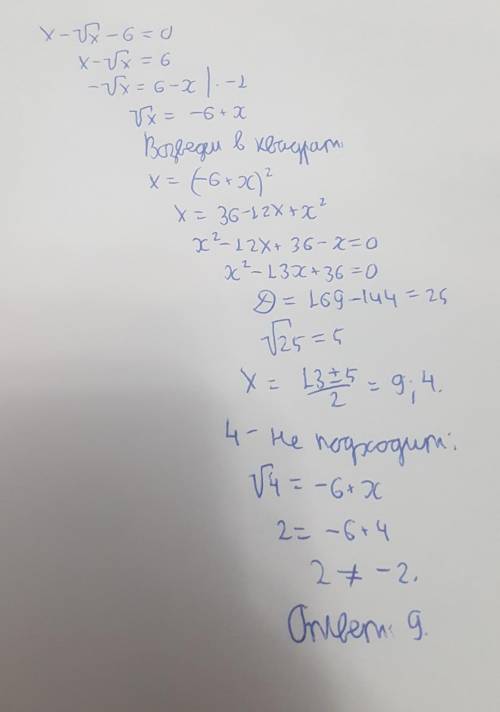 x - √x - 6 = 0
x - √x = 6
-√x = 6 - x | · -1
√x = -6 + x
Возведи в квадрат:
x = (-6 + x)²
x = 36 - 12x + x²
x² - 12x + 36 - x = 0
x² - 13x + 36 = 0
D = 169 - 144 = 25
√25 = 5
x = (13 ± 5)/2 = 9; 4.
4 - не подходит:
√4 = -6 + x
2 = -6 + 4
2 ≠ -2.
Ответ: 9.